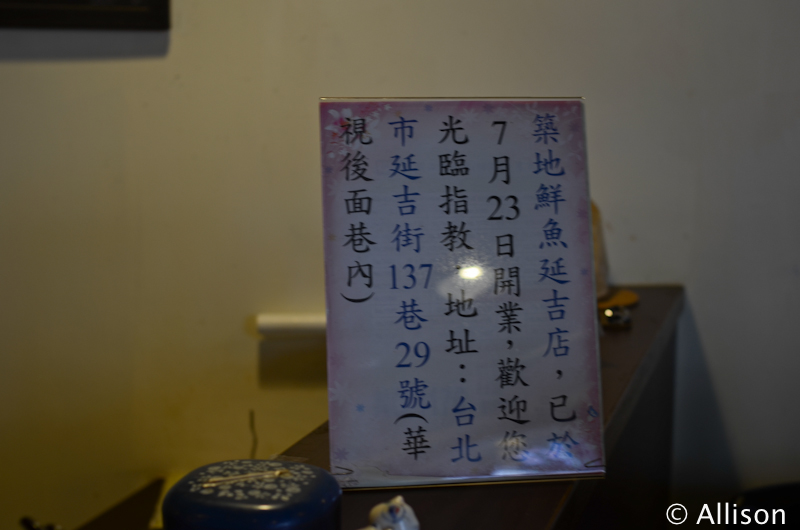 築地鮮魚延吉店，已於
7月23日開業，歡迎您
光臨指教。地址：台北
市延吉街137巷29號(華
視後面巷內)
© Allison